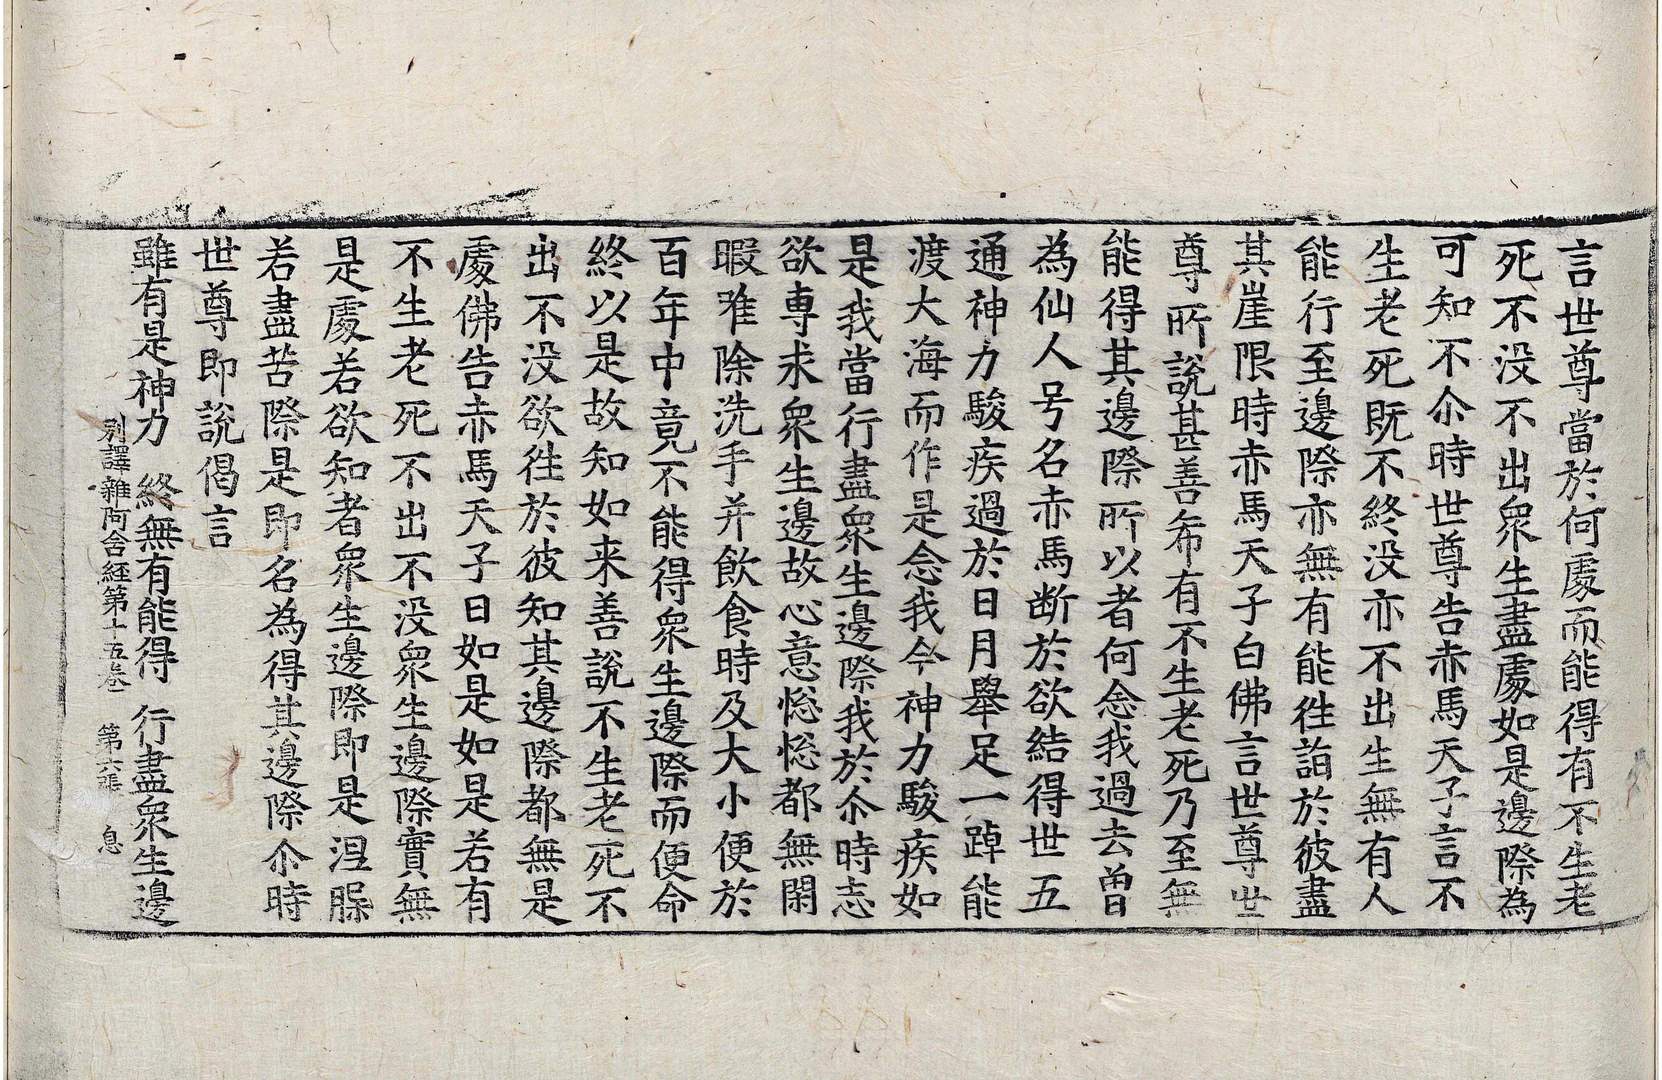 言世尊當於何處而能得有不生老
死不没不出衆生盡處如是邊際為
可知不尒時世尊告赤馬天子言不
生老死既不終没亦不出生無有人
能行至邊際亦無有能徃詣於彼盡
其崖限時赤馬天子白佛言世尊世
尊所說甚善希有不生老死乃至無
能得其邊際所以者何念我過去曽
為仙人号名赤馬断於欲結得世五
通神力駿疾過於日月舉足一踔能
渡大海而作是念我今神力駿疾如
是我當行盡衆生邊際我於尒時志
欲専求衆生邊故心意怱怱都無閑
暇唯除洗手并飲食時及大小便於
百年中竟不能得衆生邊際而便命
終以是故知如来善說不生老死不
出不没欲徃於彼知其邊際都無是
處佛告赤馬天子曰如是如是若有
不生老死不出不没衆生邊際實無
是處若欲知者衆生邊際即是涅槃
若盡苦際是即名為得其邊際尒時
世尊即說偈言
雖有是神力　終無有能得　行盡衆生邊
別譯雜阿含経第十五巻　第六張　息